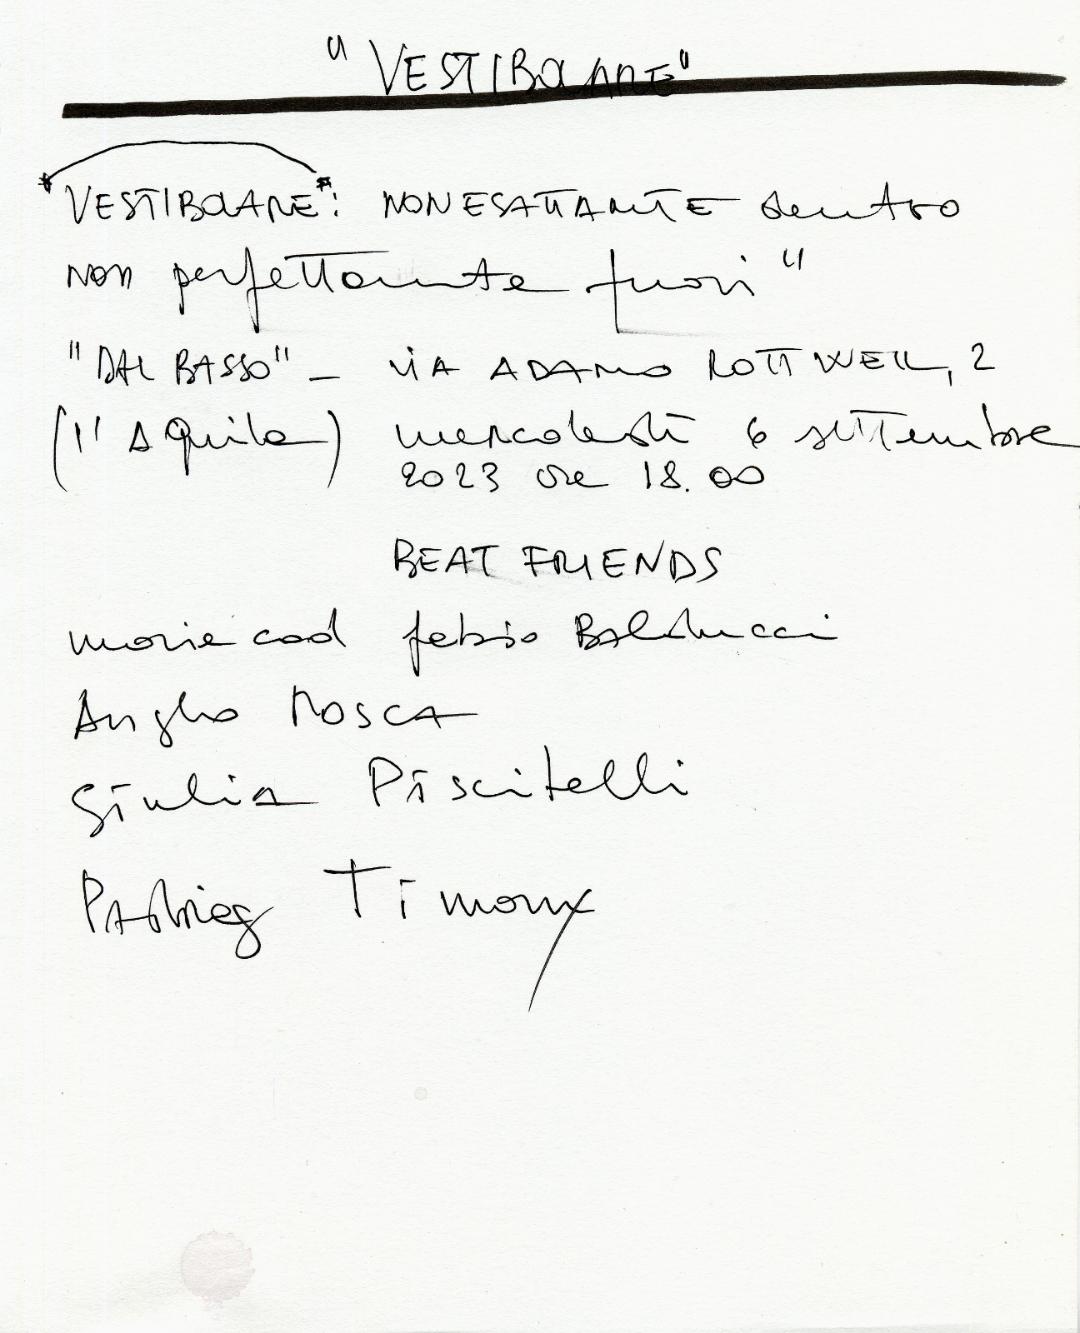 "VESTIBOLARE"
"VESTIBOLARE": NON ESATTAMTE dentro
NON perfettamente fuori"
"DAL BASSO" - VIA ADAMO ROTTWEIL, 2
(l'Aquila) mercoledì 6 settembre
2023 ore 18.00
BEAT FRIENDS
fabio Balducci
Angelo MOSCA
Giulia Piscitelli
Timoney